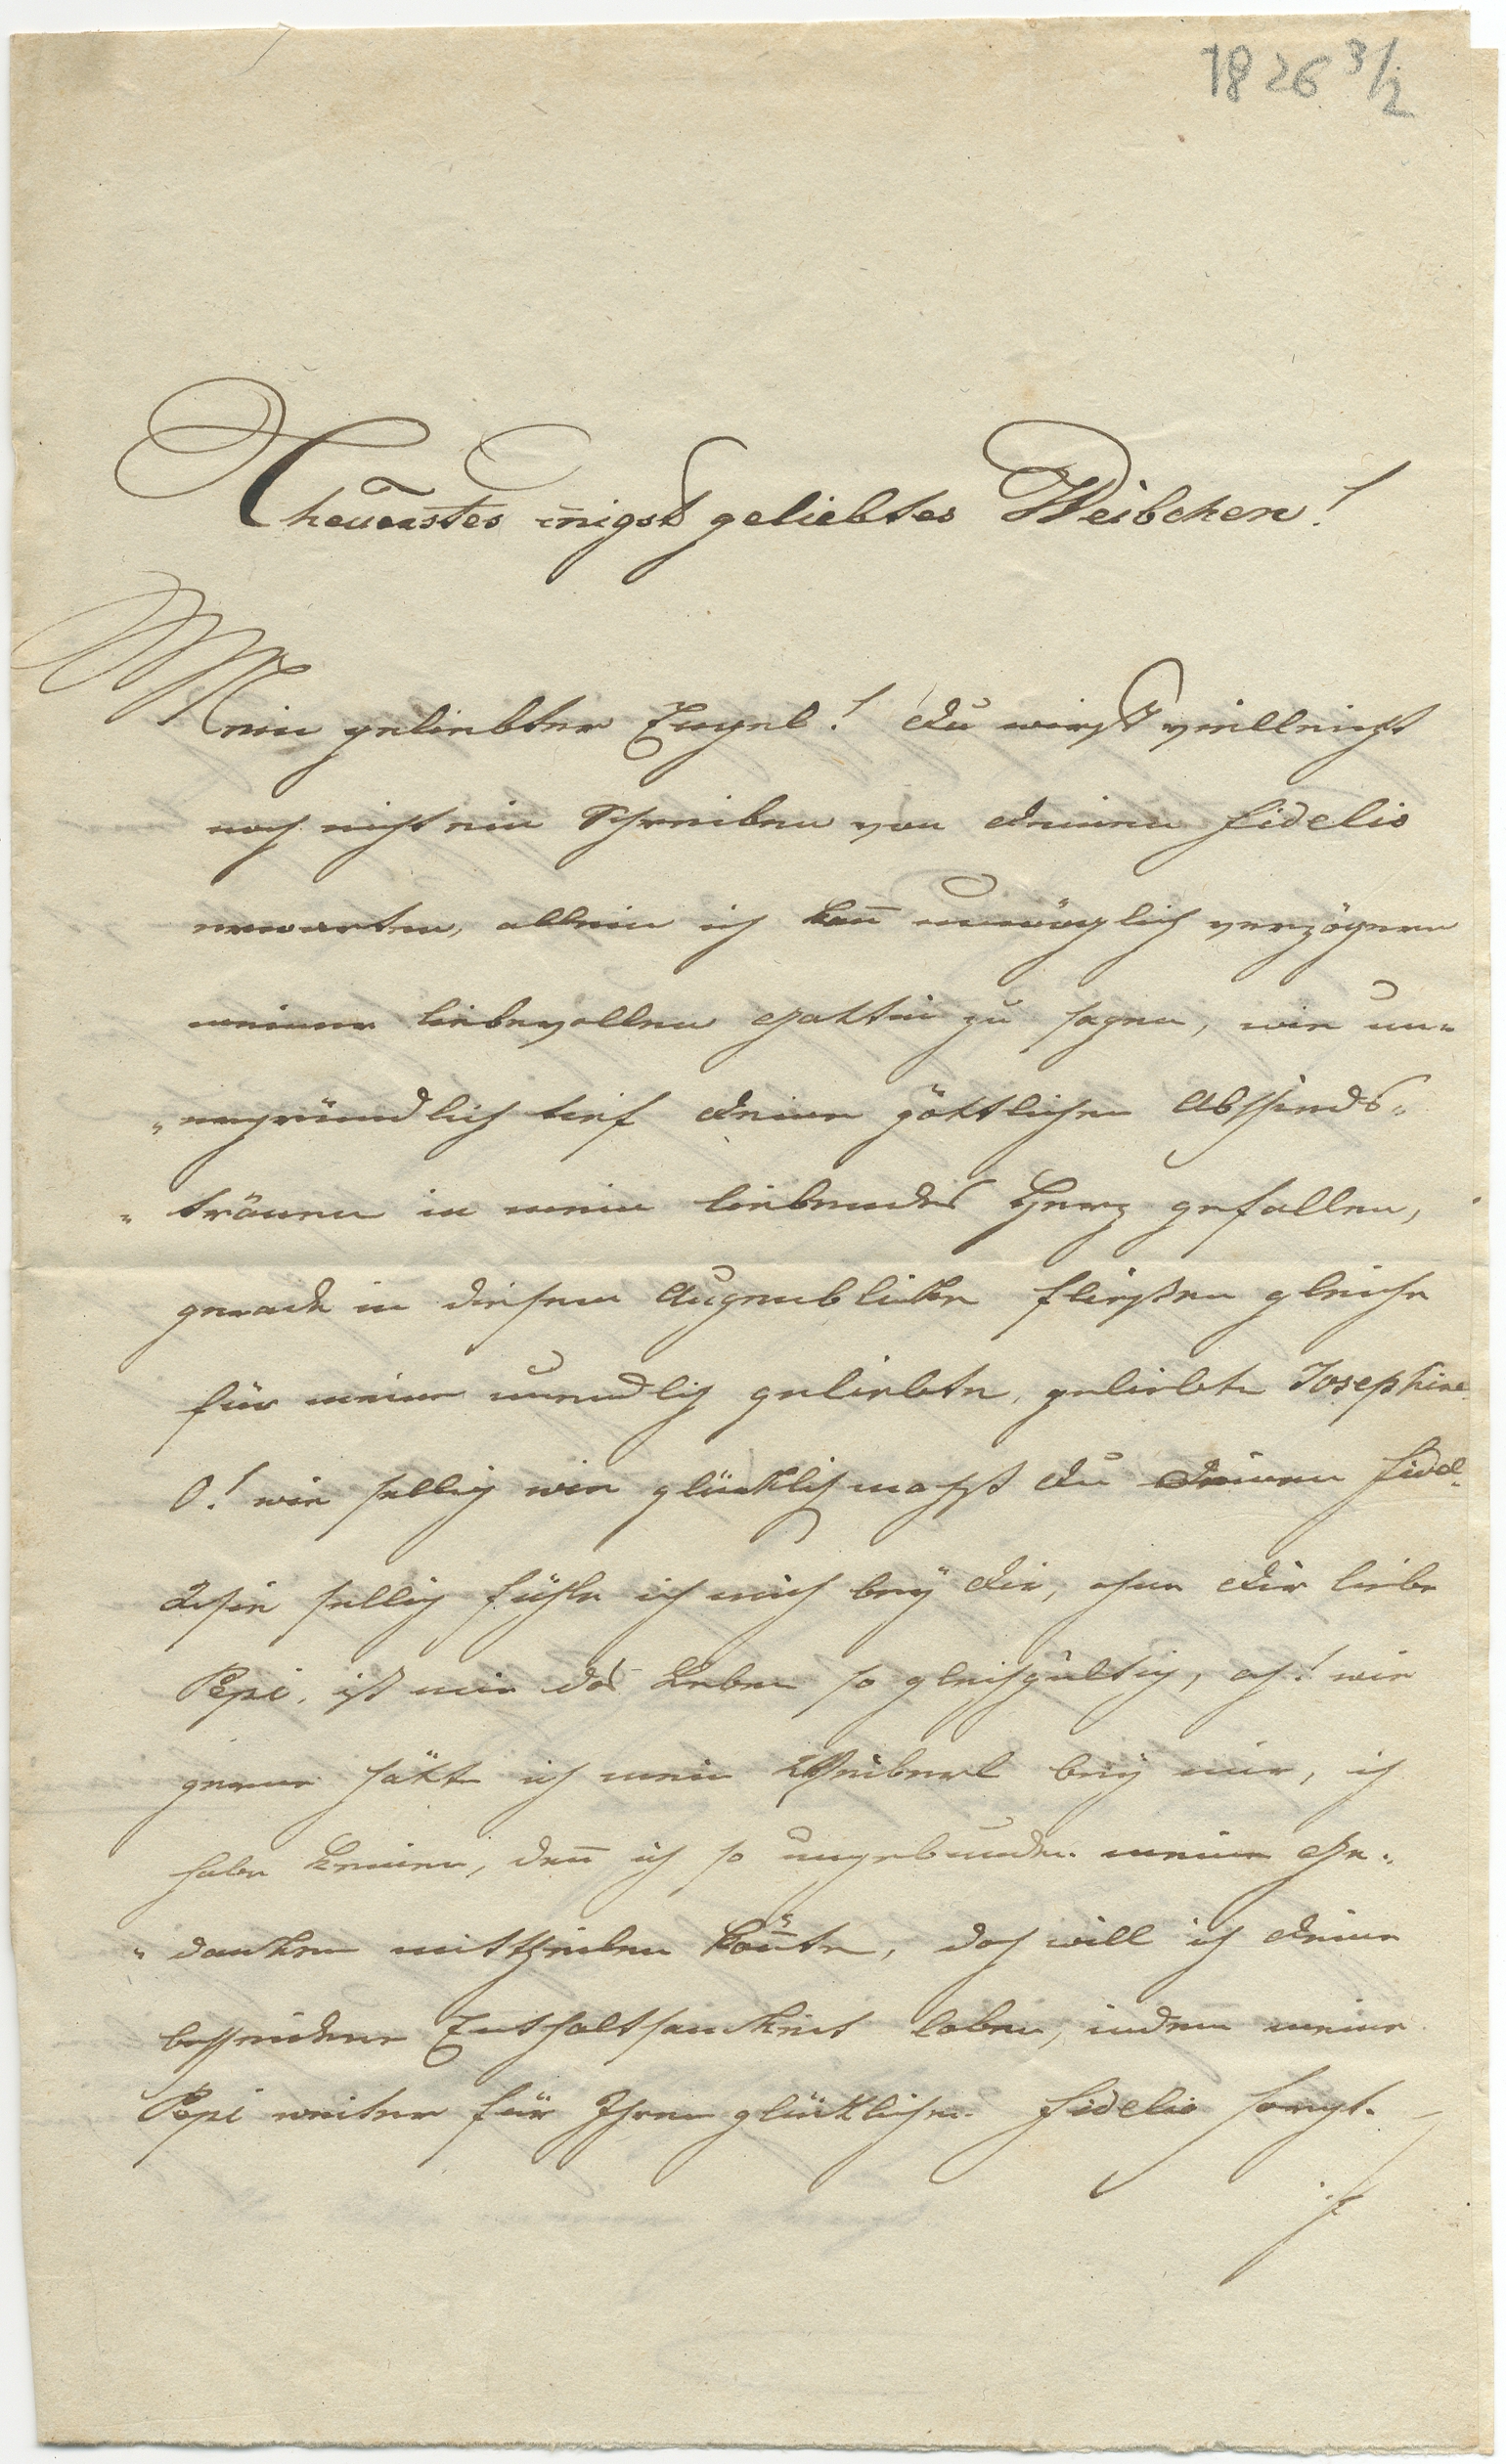 1826 3/2
Theuerstes inigst geliebtes Weibchen!
Mein geliebter Engel! Du wirst vielleicht
noch nicht ein Schreiben von deinem Fidelio
erwarten, allein ich kan̄ unmöglich verzögern
meiner liebevollen Gattin zu sagen, wie un„
„ergründlich tief deine göttlichen Abschieds„
„tränen in mein liebendes Herz gefallen,
gerade in diesem Augenblicke fließen gleiche
für meine unendlich geliebte, geliebte Josephine
O! wie sellig wie glücklich machst du deinen Fidel.
Wie sellig fühle ich mich bey dir, ohne dir liebe
Pepi, ist mir das Leben so gleichgültig, ach! wie
gerne hätte ich mein Weiberl bey mir, ich
habe keinen, den̄ ich so ungebunden meine Ge„
„danken mittheilen kön̄te, doch will ich deine
bescheidene Enthaltsamkeit loben, indem meine
Pepi weiter für Ihren glücklichen Fidelio sorgt.
./.